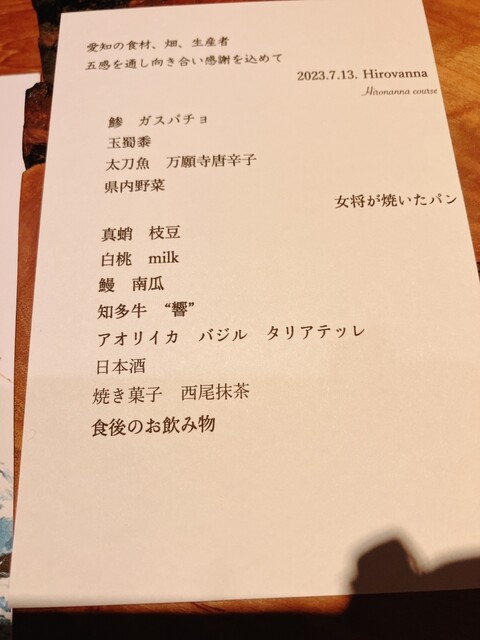 愛知の食材、畑、生産者
五感を通し向き合い感謝を込めて
2023.7.13. Hirovanna
Hironanna course
鯵　ガスパチョ
玉蜀黍
太刀魚　万願寺唐辛子
県内野菜
女将が焼いたパン
真蛸　枝豆
白桃　milk
鰻　南瓜
知多牛　“響”
アオリイカ　バジル　タリアテッレ
日本酒
焼き菓子　西尾抹茶
食後のお飲み物